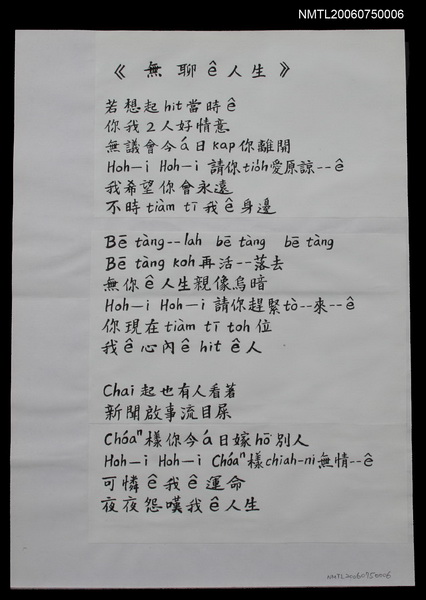 NMTL20060750006
《無聊ê人生》
若想起hit當時ê
你我2人好情意
無議會今á日kap你離開
Hoh—i Hoh—i 請你tio̍h愛原諒--ê
我希望你會永遠
不時tiàm tī我ê身邊
Bē tàng--lah bē tàng bē tàng
Bē tàng koh再活--落去
無你ê人生親像烏暗
Hoh—i Hoh—i 請你趕緊tò--來--ê
你現在tiàm tī toh位
我ê心內ê hit ê人
Chai起也有人看著
新聞啟事流目屎
Chóaⁿ樣你今á日嫁hō͘別人
Hoh—i Hoh—i Chóaⁿ樣chiah-ni無情--ê
可憐ê我ê運命
夜夜怨嘆我ê人生
NMTL20060750006